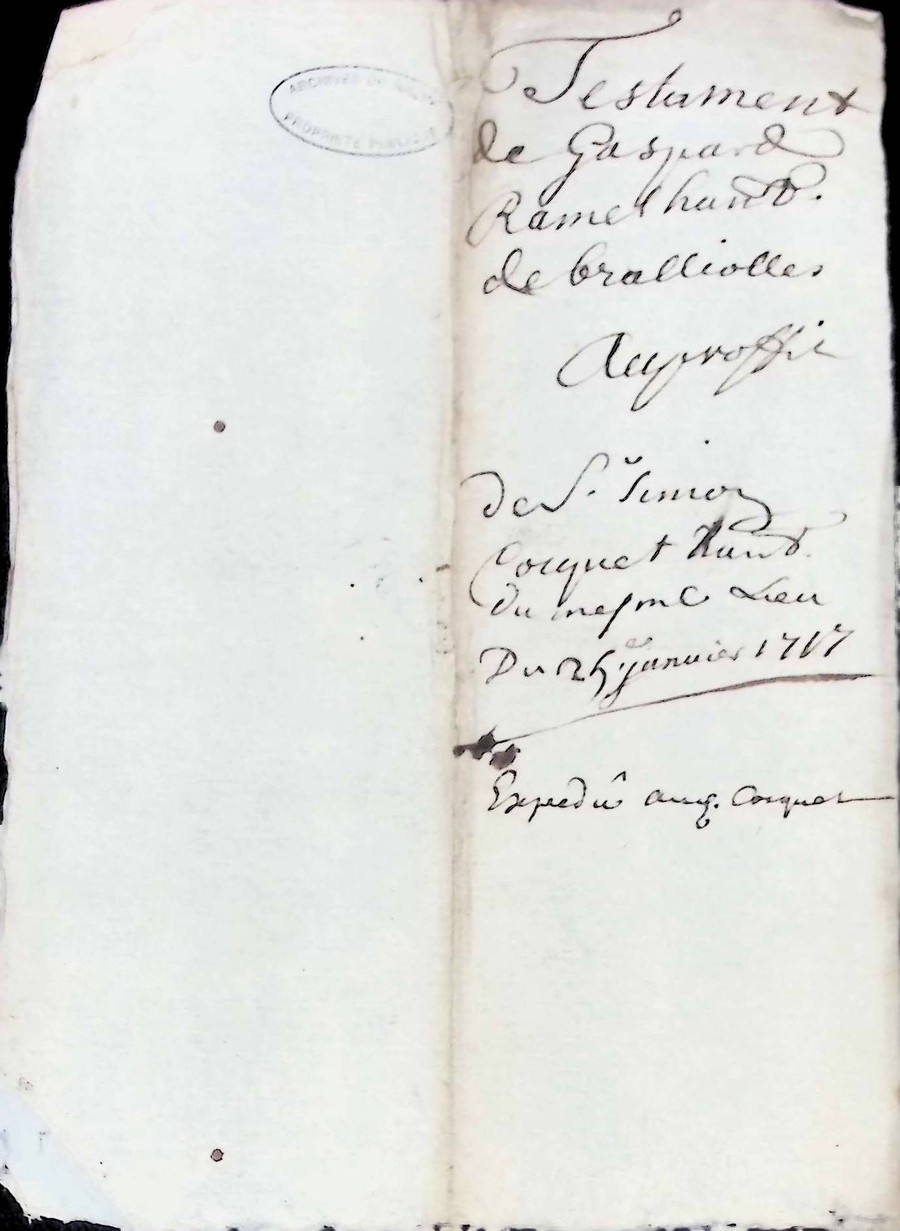 ARCHIVES DE
PROPRIÉTÉ PUBLIQUE
Testament
de Gaspard
Ramel habt.
de bralliolles
Au proffit
de Sr. Simon
Cocquet habt.
du mesme Lieu
Du 25e. janvier 1717
Expedié au Sr. Cocquet